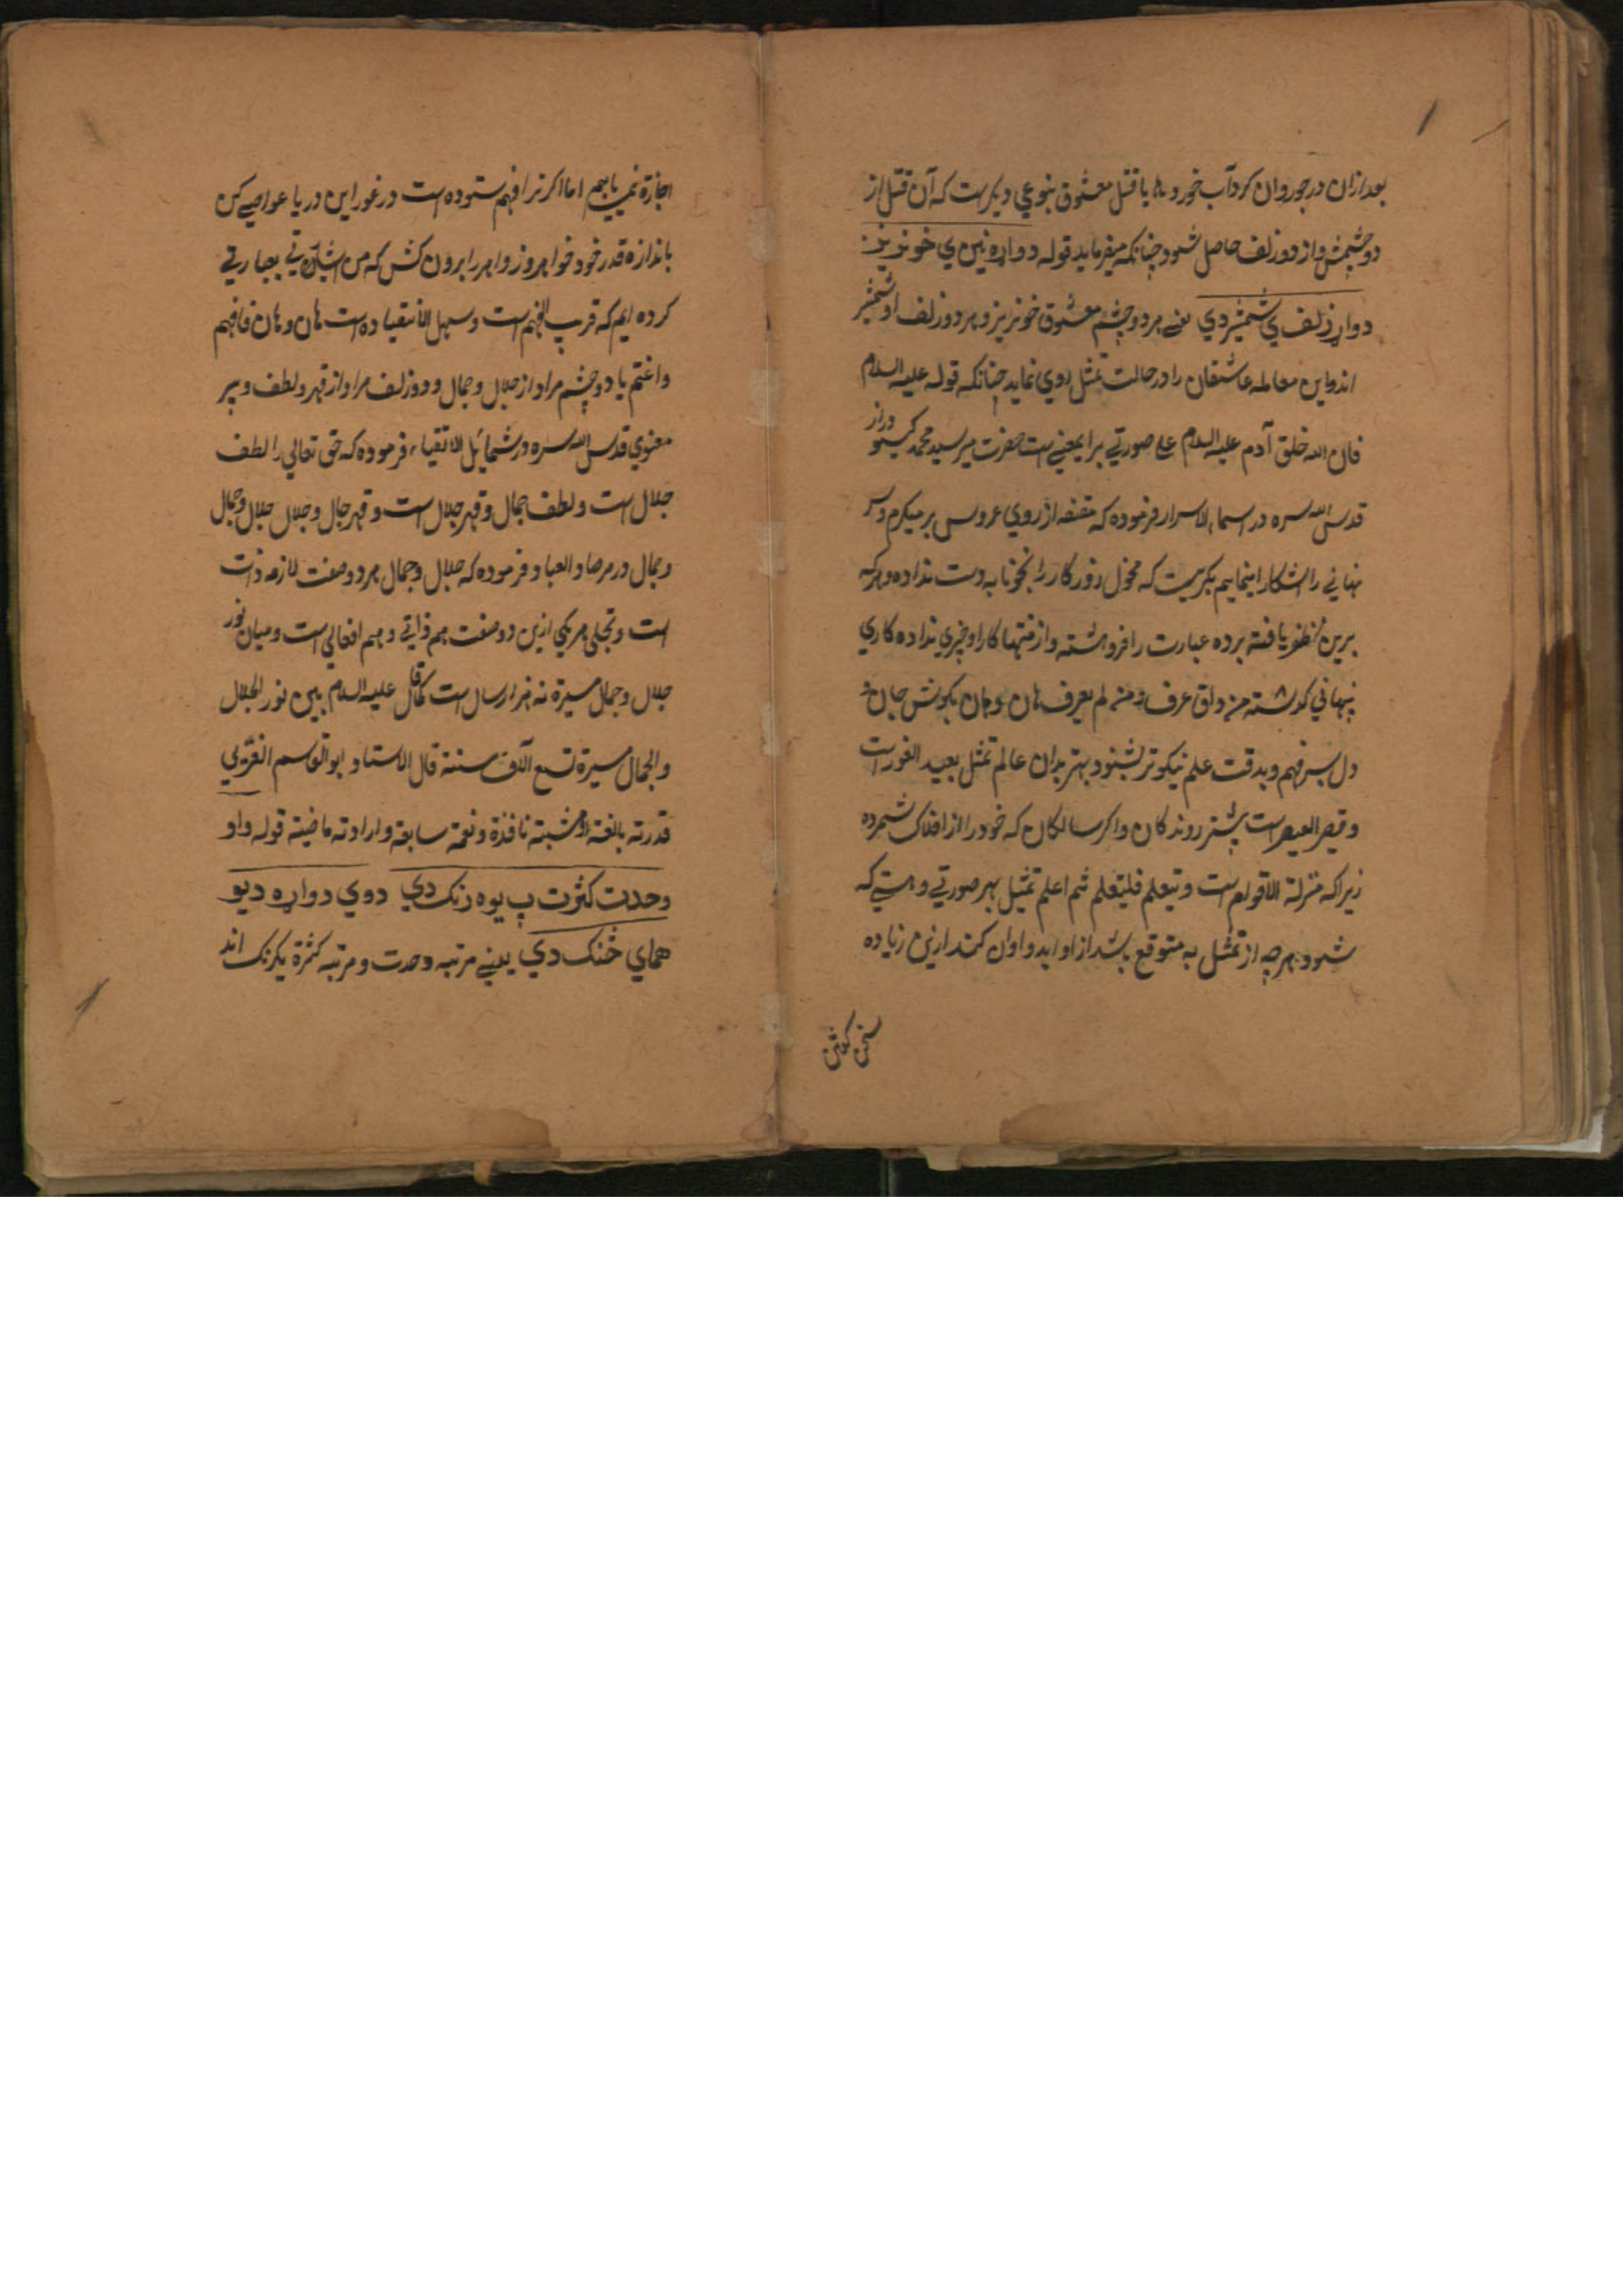 بعد ازان در جوروان کرد آب خورد یا قتل معشوق بنوعی دیکرست که آن قتل از
دو چشمش و از دو زلف حاصل شود چنانکه میفرماید قوله دواړه نین ي خونریز
دواړ زلف ي شمشیر دي یعنے هر دو چشم معشوق خونریز و هر دو زلف او شمشیر
اند و این معامله عاشقان را در حالت تمثل روي نماید چنانکه قوله علیه السلام
فان الله خلق آدم علیه السلام علی صورتي برایمعنی است حضرت میر سید محمد کیسو دراز
قدس الله سره در اسماء الاسرار فرموده که مقنعه از روي عروس بر میکرم و سر
نهاني را آشکارا مینماییم بکریست که روزکار را بدست نداده و هرکه
برین ظفر یافته پرده عبارت را فروهشته و از منتهاء کار او خبري نداده کاري
پنهاني کذشته من ذاق عرف و من لم یعرف هان و هان بکوش جان
دل بسر فهم و بدقت علم نیکوتر بشنو و بهتر بدان عالم تمثل بعید الغور است
و قعیر است بیشتر روندکان و اکر سالکان که خود را از افلاک شمرده
زیراکه منزلة الاقدام است و تیعلم فلیتعلم ثم اعلم تمثیل بهر صورتي و هیئتي که
شود هرچه از تمثل به متوقع باشد از او آید و اوان کند ازین زیاده
سخن کفتن
اجازة نمي یابیم اما اکر ترا فهم ستوده است در غور این دریا غواصي کن
باندازه قدر خود جواهر را برون کش که من اشارتي بعبارتي
کرده ایم که قریب الفهم است و سهل الانقیاد است هان و هان فافهم
و اغتنم یا دو چشم مراد از جلال و جمال و دو زلف مراد از قهر و لطف و پیر
معنوي قدس الله سره در شمائل الاتقیاء فرموده که حق تعالي را لطف
جلال است و لطف جمال و قهر جلال است و قهر جمال و جلال جلال و جمال
و جمال در مرصاد العباد فرموده که جلال و جمال هر دو صفت لازمه ذات
است و تجلی هر یکي ازین دو صفت هم ذاتي و هم افعالي است و میان نور
جلال و جمال مسیرة نه هزار سال است کما قال علیه السلام بین نور الجلال
و الجمال مسیرة تسع آلاف سنة قال الاستاد ابو القاسم
قدرته بالغة و مشیته نافذة و نعمة سابغة و ارادته ماضیة قوله و او
وحدت کثرت پ یوه رنک دي دوي دواړه دیو
همای څنک دي یعنے مرتبه وحدت و مرتبه کثرة یکرنک اند